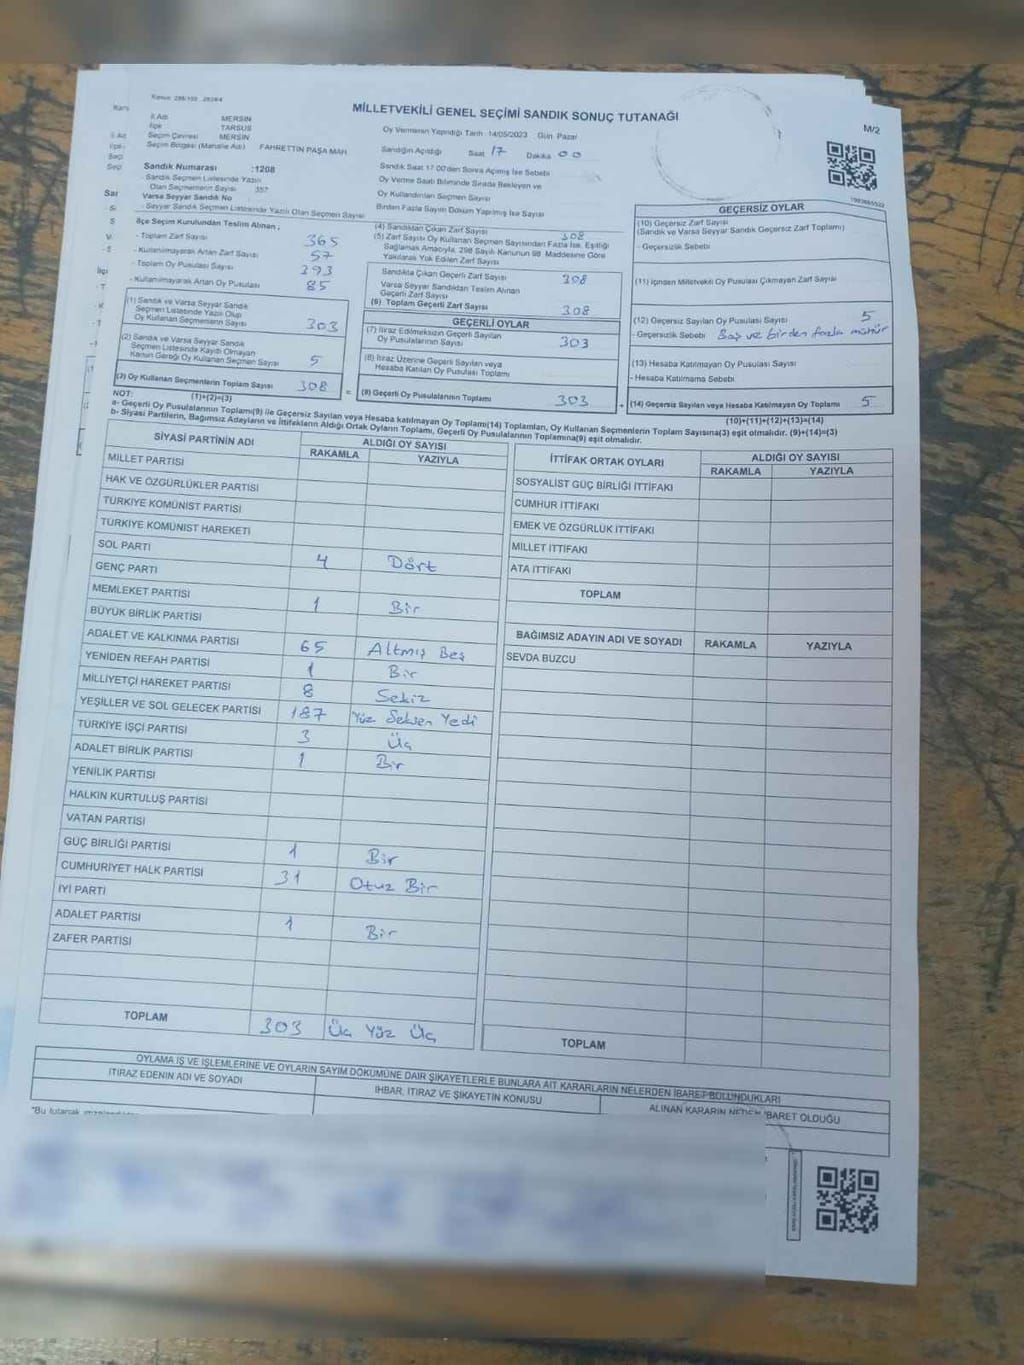 Kanun: 298/105 , 2839/4
MİLLETVEKİLİ GENEL SEÇİMİ SANDIK SONUÇ TUTANAĞI
M/2
İl Adı MERSİN
İlçe TARSUS
Seçim Çevresi MERSİN
Seçim Bölgesi (Mahalle Adı) FAHRETTİN PAŞA MAH.
Sandık Numarası :1208
- Sandık Seçmen Listesinde Yazılı
Olan Seçmenlerin Sayısı 357
Varsa Seyyar Sandık No
- Seyyar Sandık Seçmen Listesinde Yazılı Olan Seçmen Sayısı
Oy Vermenin Yapıldığı Tarih 14/05/2023 Gün Pazar
Sandığın Açıldığı Saat 17 Dakika 00
Sandık Saat 17.00'den Sonra Açılmış İse Sebebi
Oy Verme Saati Bitiminde Sırada Bekleyen ve
Oy Kullandırılan Seçmen Sayısı
Birden Fazla Sayım Döküm Yapılmış İse Sayısı
İlçe Seçim Kurulundan Teslim Alınan ;
- Toplam Zarf Sayısı 365
- Kullanılmayarak Artan Zarf Sayısı 57
- Toplam Oy Pusulası Sayısı 393
- Kullanılmayarak Artan Oy Pusulası 85
(1) Sandık ve Varsa Seyyar Sandık
Seçmen Listesinde Yazılı Olup
Oy Kullanan Seçmenlerin Sayısı 303
(2) Sandık ve Varsa Seyyar Sandık
Seçmen Listesinde Kayıtlı Olmayan
Kanun Gereği Oy Kullanan Seçmen Sayısı 5
(3) Oy Kullanan Seçmenlerin Toplam Sayısı 308
(1)+(2)=(3)
(4) Sandıktan Çıkan Zarf Sayısı 308
(5) Zarf Sayısı Oy Kullanan Seçmen Sayısından Fazla İse, Eşitliği
Sağlamak Amacıyla, 298 Sayılı Kanunun 98. Maddesine Göre
Yakılarak Yok Edilen Zarf Sayısı
Sandıkta Çıkan Geçerli Zarf Sayısı 308
Varsa Seyyar Sandıktan Teslim Alınan
Geçerli Zarf Sayısı
(6) Toplam Geçerli Zarf Sayısı 308
GEÇERLİ OYLAR
(7) İtiraz Edilmeksizin Geçerli Sayılan
Oy Pusulalarının Sayısı 303
(8) İtiraz Üzerine Geçerli Sayılan veya
Hesaba Katılan Oy Pusulası Toplamı
= (9) Geçerli Oy Pusulalarının Toplamı 303 +
GEÇERSİZ OYLAR
(10) Geçersiz Zarf Sayısı
(Sandık ve Varsa Seyyar Sandık Geçersiz Zarf Toplamı)
- Geçersizlik Sebebi
(11) İçinden Milletvekili Oy Pusulası Çıkmayan Zarf Sayısı
(12) Geçersiz Sayılan Oy Pusulası Sayısı 5
- Geçersizlik Sebebi Boş ve birden fazla mühür
(13) Hesaba Katılmayan Oy Pusulası Sayısı
- Hesaba Katılmama Sebebi
(14) Geçersiz Sayılan veya Hesaba Katılmayan Oy Toplamı 5
(10)+(11)+(12)+(13)=(14)
NOT:
a- Geçerli Oy Pusulalarının Toplamı(9) ile Geçersiz Sayılan veya Hesaba katılmayan Oy Toplamı(14) Toplamları, Oy Kullanan Seçmenlerin Toplam Sayısına(3) eşit olmalıdır. (9)+(14)=(3)
b- Siyasi Partilerin, Bağımsız Adayların ve İttifakların Aldığı Ortak Oyların Toplamı, Geçerli Oy Pusulalarının Toplamına(9) eşit olmalıdır.
SİYASİ PARTİNİN ADI ALDIĞI OY SAYISI
RAKAMLA YAZIYLA
MİLLET PARTİSİ
HAK VE ÖZGÜRLÜKLER PARTİSİ
TÜRKİYE KOMÜNİST PARTİSİ
TÜRKİYE KOMÜNİST HAREKETİ
SOL PARTİ
GENÇ PARTİ 4 Dört
MEMLEKET PARTİSİ
BÜYÜK BİRLİK PARTİSİ 1 Bir
ADALET VE KALKINMA PARTİSİ 65 Altmış Beş
YENİDEN REFAH PARTİSİ 1 Bir
MİLLİYETÇİ HAREKET PARTİSİ 8 Sekiz
YEŞİLLER VE SOL GELECEK PARTİSİ 187 Yüz Seksen Yedi
TÜRKİYE İŞÇİ PARTİSİ 3 Üç
ADALET BİRLİK PARTİSİ 1 Bir
YENİLİK PARTİSİ
HALKIN KURTULUŞ PARTİSİ
VATAN PARTİSİ
GÜÇ BİRLİĞİ PARTİSİ 1 Bir
CUMHURİYET HALK PARTİSİ 31 Otuz Bir
İYİ PARTİ
ADALET PARTİSİ 1 Bir
ZAFER PARTİSİ
TOPLAM 303 Üç Yüz Üç
İTTİFAK ORTAK OYLARI ALDIĞI OY SAYISI
RAKAMLA YAZIYLA
SOSYALİST GÜÇ BİRLİĞİ İTTİFAKI
CUMHUR İTTİFAKI
EMEK VE ÖZGÜRLÜK İTTİFAKI
MİLLET İTTİFAKI
ATA İTTİFAKI
TOPLAM
BAĞIMSIZ ADAYIN ADI VE SOYADI RAKAMLA YAZIYLA
SEVDA BUZCU
TOPLAM
OYLAMA İŞ VE İŞLEMLERİNE VE OYLARIN SAYIM DÖKÜMÜNE DAİR ŞİKAYETLERLE BUNLARA AİT KARARLARIN NELERDEN İBARET BULUNDUKLARI
İTİRAZ EDENİN ADI VE SOYADI
İHBAR, İTİRAZ VE ŞİKAYETİN KONUSU
ALINAN KARARIN NEDEN İBARET OLDUĞU
*Bu tutanak